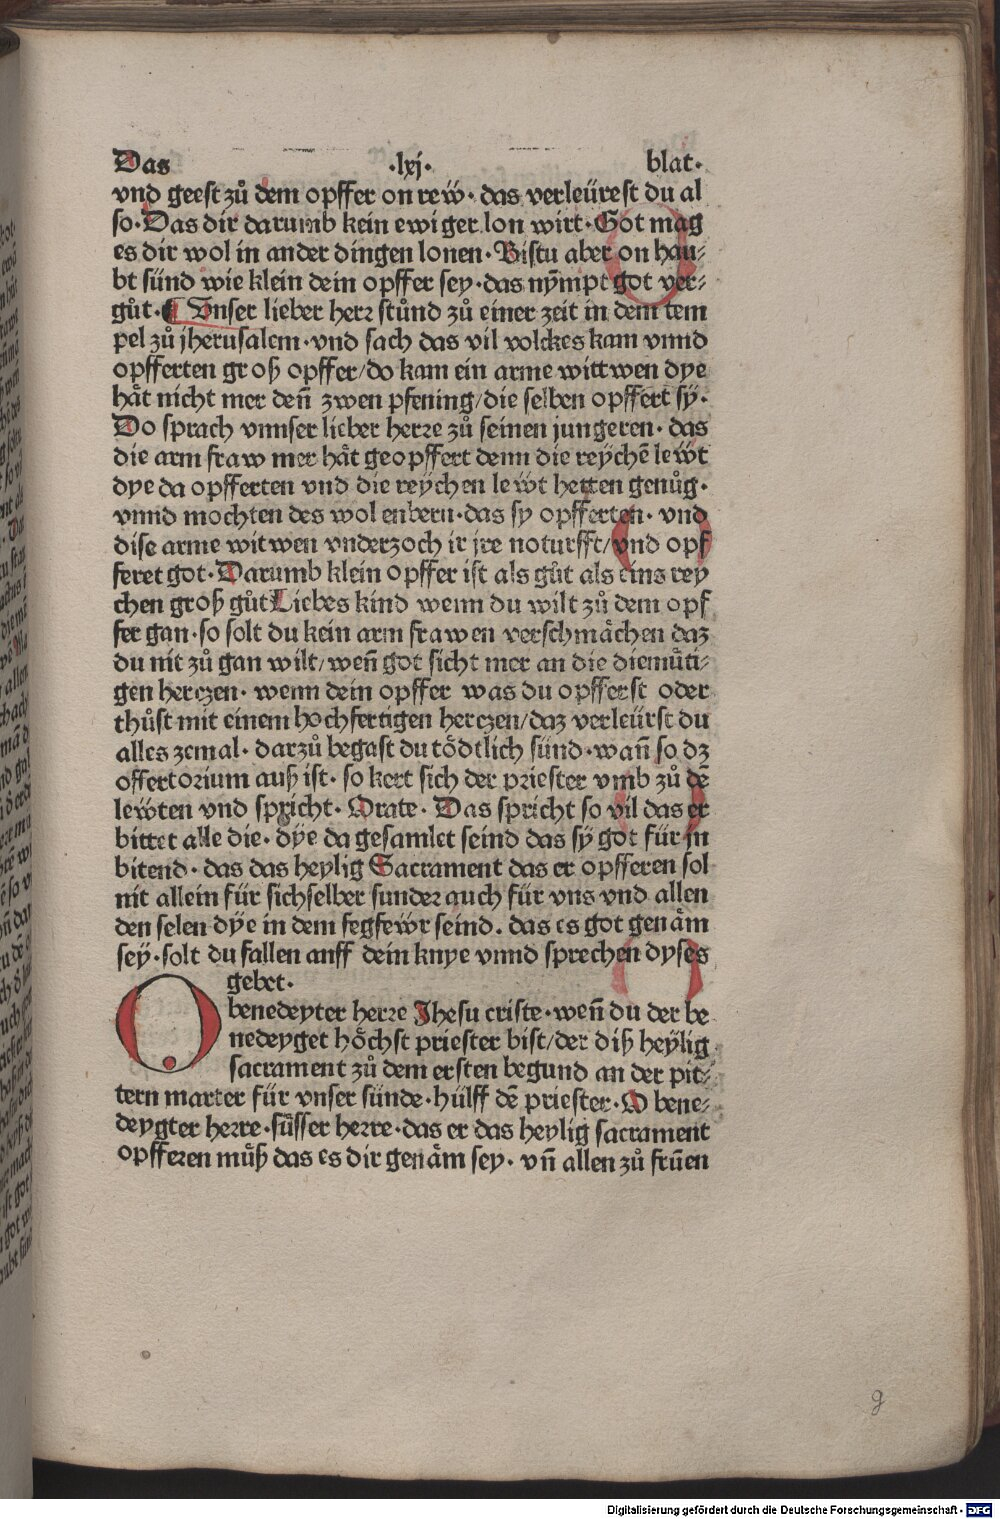 Das ·lxj· blat·
vnd geest zů dem opffer on rew̎· das verleürest du al
so· Das dir darumb kein ewiger lon wirt· Got mag
es dir wol in ander dingen lonen· Bistu aber on hau⸗
bt sünd wie klein dein opffer sey· das nẏmpt got ver⸗
gůt· ¶ Vnser lieber herꝛ stůnd zů einer zeit in dem tem
pel zů jherusalem· vnd sach das vil volckes kam vnnd
opfferten groß opffer/do kam ein arme wittwen dye
hät nicht mer deñ zwen pfening/die selben opffert sẏ·
Do sprach vnnser lieber herꝛe zů seinen jungeren· das
die arm fraw mer hät geopffert denn die reẏchē lew̎t
dye da opfferten vnd die reẏchen lew̎t hetten genůg·
vnnd mochten des wol enbern· das sy opfferten· vnd
dise arme witwen vnderzoch ir jre noturfft/vnd opf
feret got· Darumb klein opffer ist als gůt als eins rey
chen groß gůt Liebes kind wenn du wilt zů dem opf
fer gan· so solt du kein arm frawen verschmächen daz
du nit zů gan wilt/weñ got sicht mer an die diemüti⸗
gen herczen· wenn dein opffer was du opfferst oder
thůst mit einem hochfertigen herczen/daz verleürst du
alles zemal· darzů begast du tödtlich sünd· wañ so dz
offertorium auß ist· so kert sich der priester vmb zů dē
lewten vnd spricht· Orate· Das spricht so vil das er
bittet alle die· dẏe da gesamlet seind das sẏ got für jn
bitend· das das heylig Sacrament das er opfferen sol
nit allein für sichselber sunder auch für vns vnd allen
den selen dẏe in dem fegfew̎r seind. das es got genäm
sey· solt du fallen anff dein knye vnnd sprechen dyses
gebet·
O benedeyter herꝛe Jhesu criste· weñ du der be
nedeyget höchst priester bist/der diß heẏlig
sacrament zů dem ersten begund an der pit⸗
tern marter für vnser sünde· hülff dē priester· O bene⸗
deygter herꝛe· süsser herꝛe· das er das heylig sacrament
opfferen můß das es dir genäm sey· vñ allen zů frūen
g
Digitalisierung gefördert durch die Deutsche Forschungsgemeinschaft · DFG